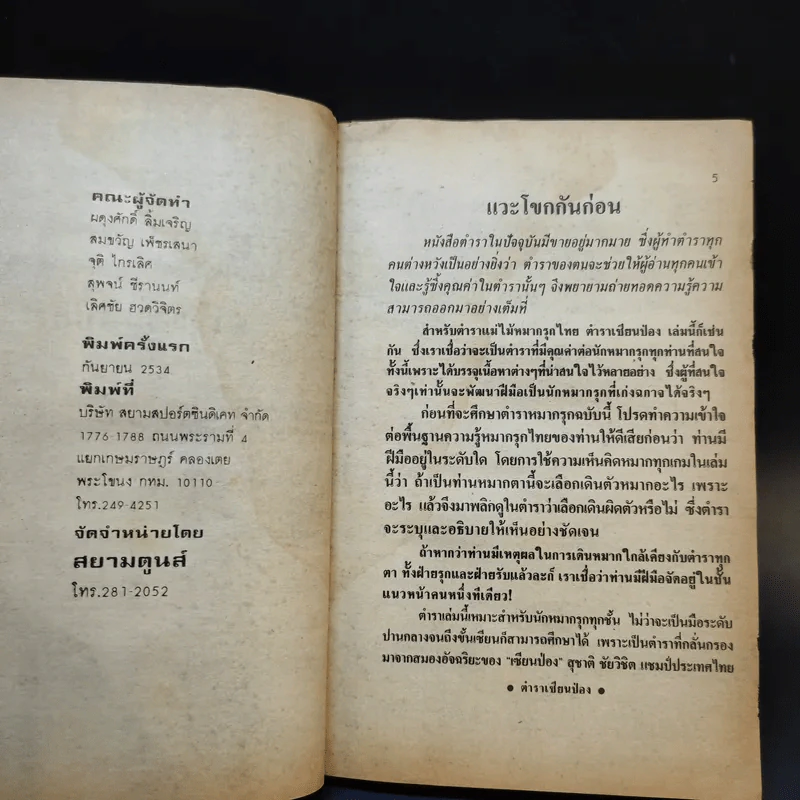 คณะผู้จัดทำ
ผดุงศักดิ์ ลิ้มเจริญ
สมขวัญ เพ็ชรเสนา
จุติ ไกรเลิศ
สุพจน์ ชีรานนท์
เลิศชัย ฮวดวิจิตร
พิมพ์ครั้งแรก
กันยายน 2534
พิมพ์ที่
บริษัท สยามสปอร์ตซินดิเคท จำกัด
1776-1788 ถนนพระรามที่ 4
แยกเกษมราษฎร์ คลองเตย
พระโขนง กทม. 10110
โทร.249-4251
จัดจำหน่ายโดย
สยามตูนส์
โทร.281-2052
5
แวะโขกกันก่อน
หนังสือตำราในปัจจุบันมีขายอยู่มากมาย ซึ่งผู้ทำตำราทุก
คนต่างหวังเป็นอย่างยิ่งว่า ตำราของตนจะช่วยให้ผู้อ่านทุกคนเข้า
ใจและรู้ซึ้งคุณค่าในตำรานั้นๆ จึงพยายามถ่ายทอดความรู้ความ
สามารถออกมาอย่างเต็มที่
สำหรับตำราแม่ไม้หมากรุกไทย ตำราเซียนป๋อง เล่มนี้ก็เช่น
กัน ซึ่งเราเชื่อว่าจะเป็นตำราที่มีคุณค่าต่อนักหมากรุกทุกท่านที่สนใจ
ทั้งนี้เพราะได้บรรจุเนื้อหาต่างๆที่น่าสนใจไว้หลายอย่าง ซึ่งผู้ที่สนใจ
จริงๆเท่านั้นจะพัฒนาฝีมือเป็นนักหมากรุกที่เก่งฉกาจได้จริงๆ
ก่อนที่จะศึกษาตำราหมากรุกฉบับนี้ โปรดทำความเข้าใจ
ต่อพื้นฐานความรู้หมากรุกไทยของท่านให้ดีเสียก่อนว่า ท่านมี
ฝีมืออยู่ในระดับใด โดยการใช้ความเห็นคิดหมากทุกเกมในเล่ม
นี้ว่า ถ้าเป็นท่านหมากตานี้จะเลือกเดินตัวหมากอะไร เพราะ
อะไร แล้วจึงมาพลิกดูในตำราว่าเลือกเดินผิดตัวหรือไม่ ซึ่งตำรา
จะระบุและอธิบายให้เห็นอย่างชัดเจน
ถ้าหากว่าท่านมีเหตุผลในการเดินหมากใกล้เคียงกับตำราทุก
ตา ทั้งฝ่ายรุกและฝ่ายรับแล้วละก็ เราเชื่อว่าท่านมีฝีมือจัดอยู่ในชั้น
แนวหน้าคนหนึ่งทีเดียว!
ตำราเล่มนี้เหมาะสำหรับนักหมากรุกทุกชั้น ไม่ว่าจะเป็นมือระดับ
ปานกลางจนถึงขั้นเซียนก็สามารถศึกษาได้ เพราะเป็นตำราที่กลั่นกรอง
มาจากสมองอัจฉริยะของ "เซียนป๋อง" สุชาติ ชัยวิชิต แชมป์ประเทศไทย
● ตำราเซียนป๋อง ●